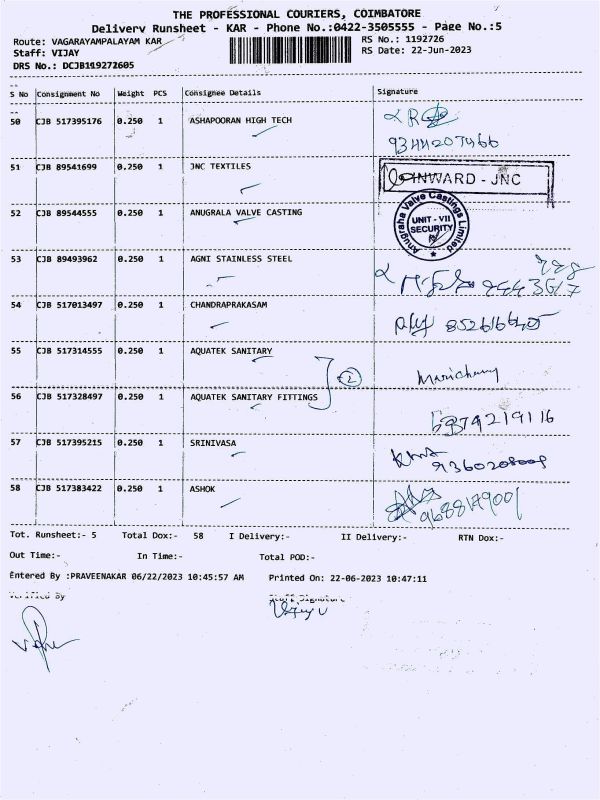 THE PROFESSIONAL COURIERS, COIMBATORE
Delivery Runsheet - KAR - Phone No.:0422-3505555 - Page No.:5
Route: VAGARAYAMPALAYAM KAR
RS No.: 1192726
Staff: VIJAY
RS Date: 22-Jun-2023
DRS No.: DCJB119272605
S No Consignment No Weight PCS Consignee Details Signature
50 CJB 517395176 0.250 1 ASHAPOORAN HIGH TECH
9344207466
51 CJB 89541699 0.250 1 JNC TEXTILES
INWARD - JNC
52 CJB 89544555 0.250 1 ANUGRALA VALVE CASTING
Anugraha Valve Castings Limited
UNIT - VII
SECURITY
53 CJB 89493962 0.250 1 AGNI STAINLESS STEEL
54 CJB 517013497 0.250 1 CHANDRAPRAKASAM
55 CJB 517314555 0.250 1 AQUATEK SANITARY
2
56 CJB 517328497 0.250 1 AQUATEK SANITARY FITTINGS
57 CJB 517395215 0.250 1 SRINIVASA
58 CJB 517383422 0.250 1 ASHOK
Tot. Runsheet:- 5 Total Dox:- 58 I Delivery:- II Delivery:- RTN Dox:-
Out Time:- In Time:- Total POD:-
Entered By :PRAVEENAKAR 06/22/2023 10:45:57 AM Printed On: 22-06-2023 10:47:11
Verified By Staff Signature